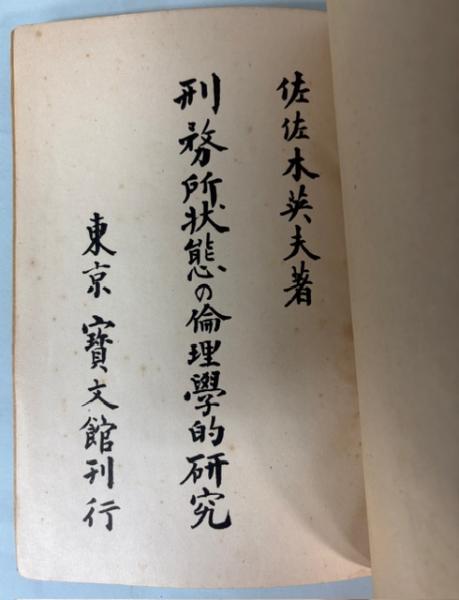 佐佐木英夫著
刑務所状態の倫理學的研究
東京 寳文館刊行